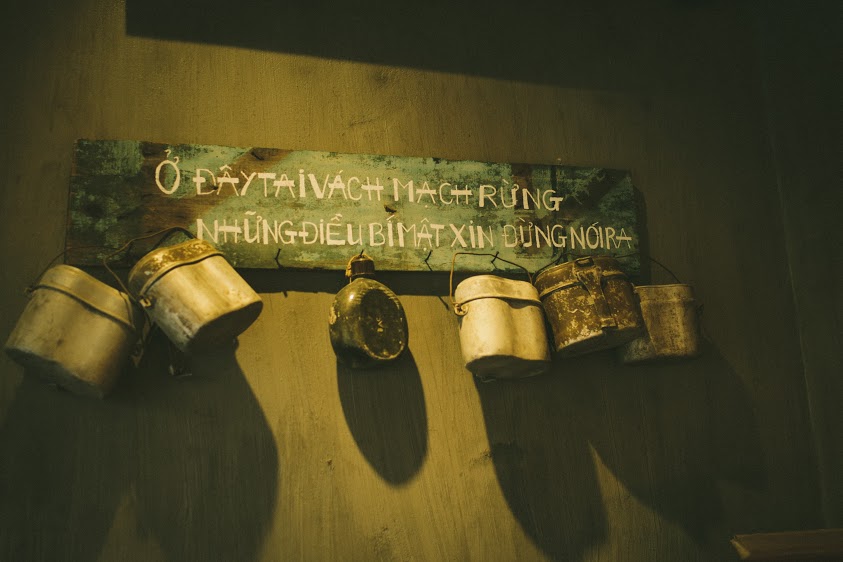 Ở ĐÂY TAI VÁCH MẠCH RỪNG
NHỮNG ĐIỀU BÍ MẬT XIN ĐỪNG NÓI RA